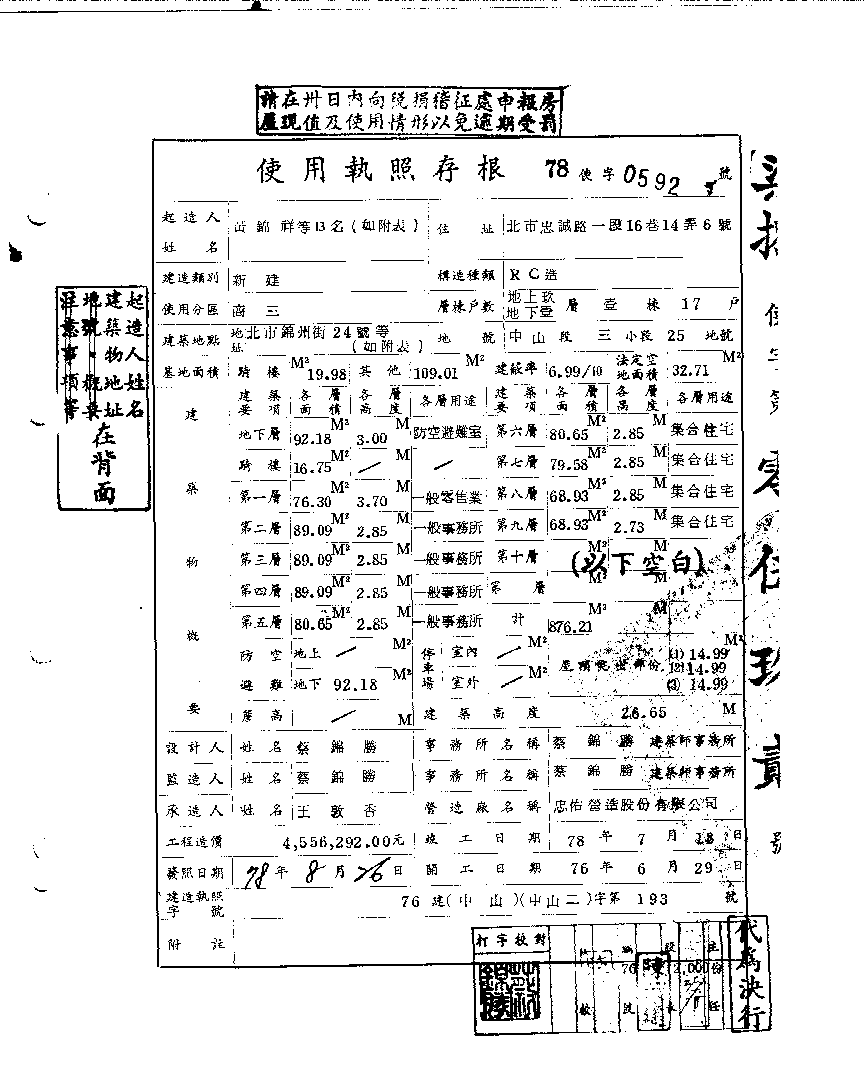 請在卅日內向稅捐稽征處申報房
屋現值及使用情形以免逾期受罰
使用執照存根 78 使字 0592 號
起造人姓名 黃錦祥等13名(如附表) 住址 北市忠誠路一段16巷14弄6號
建造類別 新建 構造種類 RC造
使用分區 商三 層棟戶數 地上玖 地下壹 層 壹 棟 17 戶
建築地點 地址 北市錦州街24號等(如附表) 地號 中山段 三 小段 25 地號
基地面積 騎樓 19.98 M² 其他 109.01 M² 建蔽率 6.99/10 法定空地面積 32.71 M²
建築物概要
建築要項 各層面積 各層高度 各層用途 建築要項 各層面積 各層高度 各層用途
地下層 92.18 M² 3.00 M 防空避難室 第六層 80.65 M² 2.85 M 集合住宅
騎樓 16.75 M² / M / 第七層 79.58 M² 2.85 M 集合住宅
第一層 76.30 M² 3.70 M 一般零售業 第八層 68.93 M² 2.85 M 集合住宅
第二層 89.09 M² 2.85 M 一般事務所 第九層 68.93 M² 2.73 M 集合住宅
第三層 89.09 M² 2.85 M 一般事務所 第十層 M² M
(以下空白)
第四層 89.09 M² 2.85 M 一般事務所 第 層 M² M
第五層 80.65 M² 2.85 M 一般事務所 計 876.21 M² M
防空避難 地上 / M² 停車場 室內 / M² 屋頂突出部份 (1) 14.99 M²
(2) 14.99
地下 92.18 M² 室外 / M² (3) 14.99
簷高 / M 建築高度 26.65 M
設計人 姓名 蔡錦勝 事務所名稱 蔡錦勝建築師事務所
監造人 姓名 蔡錦勝 事務所名稱 蔡錦勝建築師事務所
承造人 姓名 王敦 營造廠名稱 忠佑營造股份有限公司
工程造價 4,556,292.00元 竣工日期 78年7月18日
發照日期 78年8月26日 開工日期 76年6月29日
建造執照字號 76建(中山)(中山二)字第193號
附註
起造人姓名
建築物地址
地號·概要
注意事項等
在背面
使字第
零伍玖貳
號
打字校對
代為決行